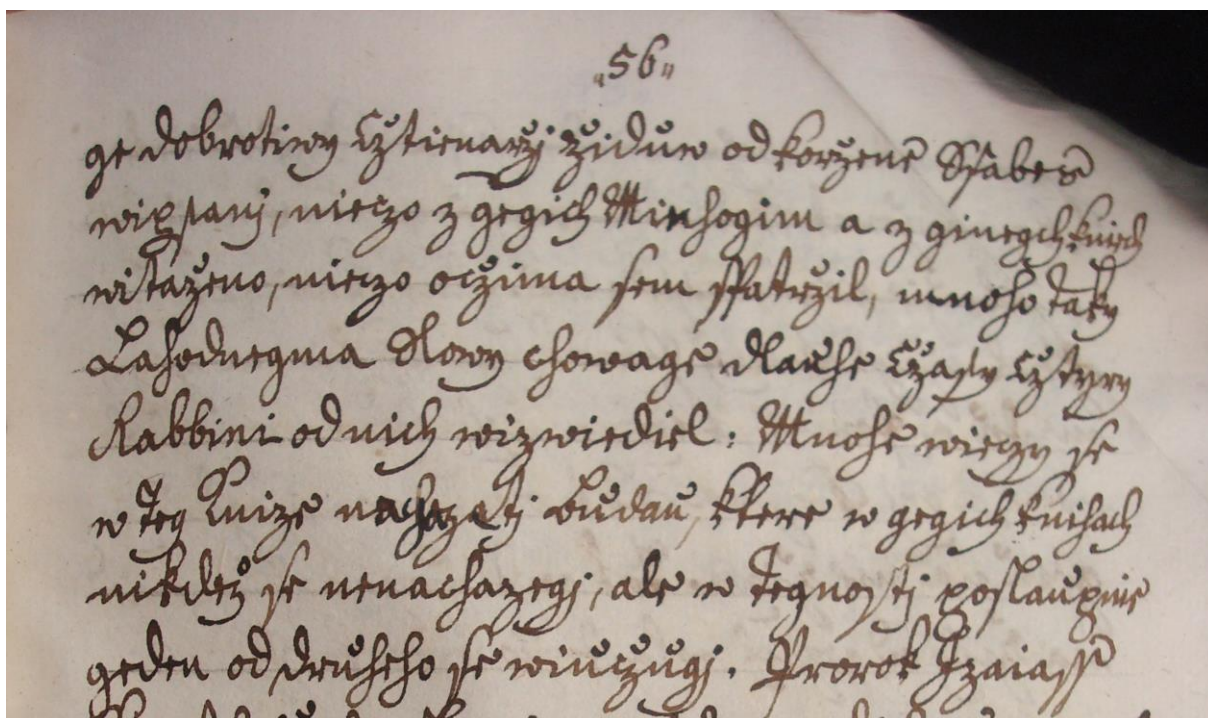 „56„
ge dobrotiwy Cztienarzj židuw od korzene Sfabes
wixslanj, nieczo z gegich Minhogim a z ginegch knich
witaženo, nieczo oczima sem spatržil, mnoho taky
Lahodnegma Slowy chowage dlauhe Czasy Cztyry
Rabbini od nich wizwiediel: Mnohe wieczy se
w teg knize nachazeti budau, ktere w gegich knihach
nikdež se nenachazegj, ale w tegnostj poslaupnie
geden od druheho se wiuczugj. Prorok Izaiass